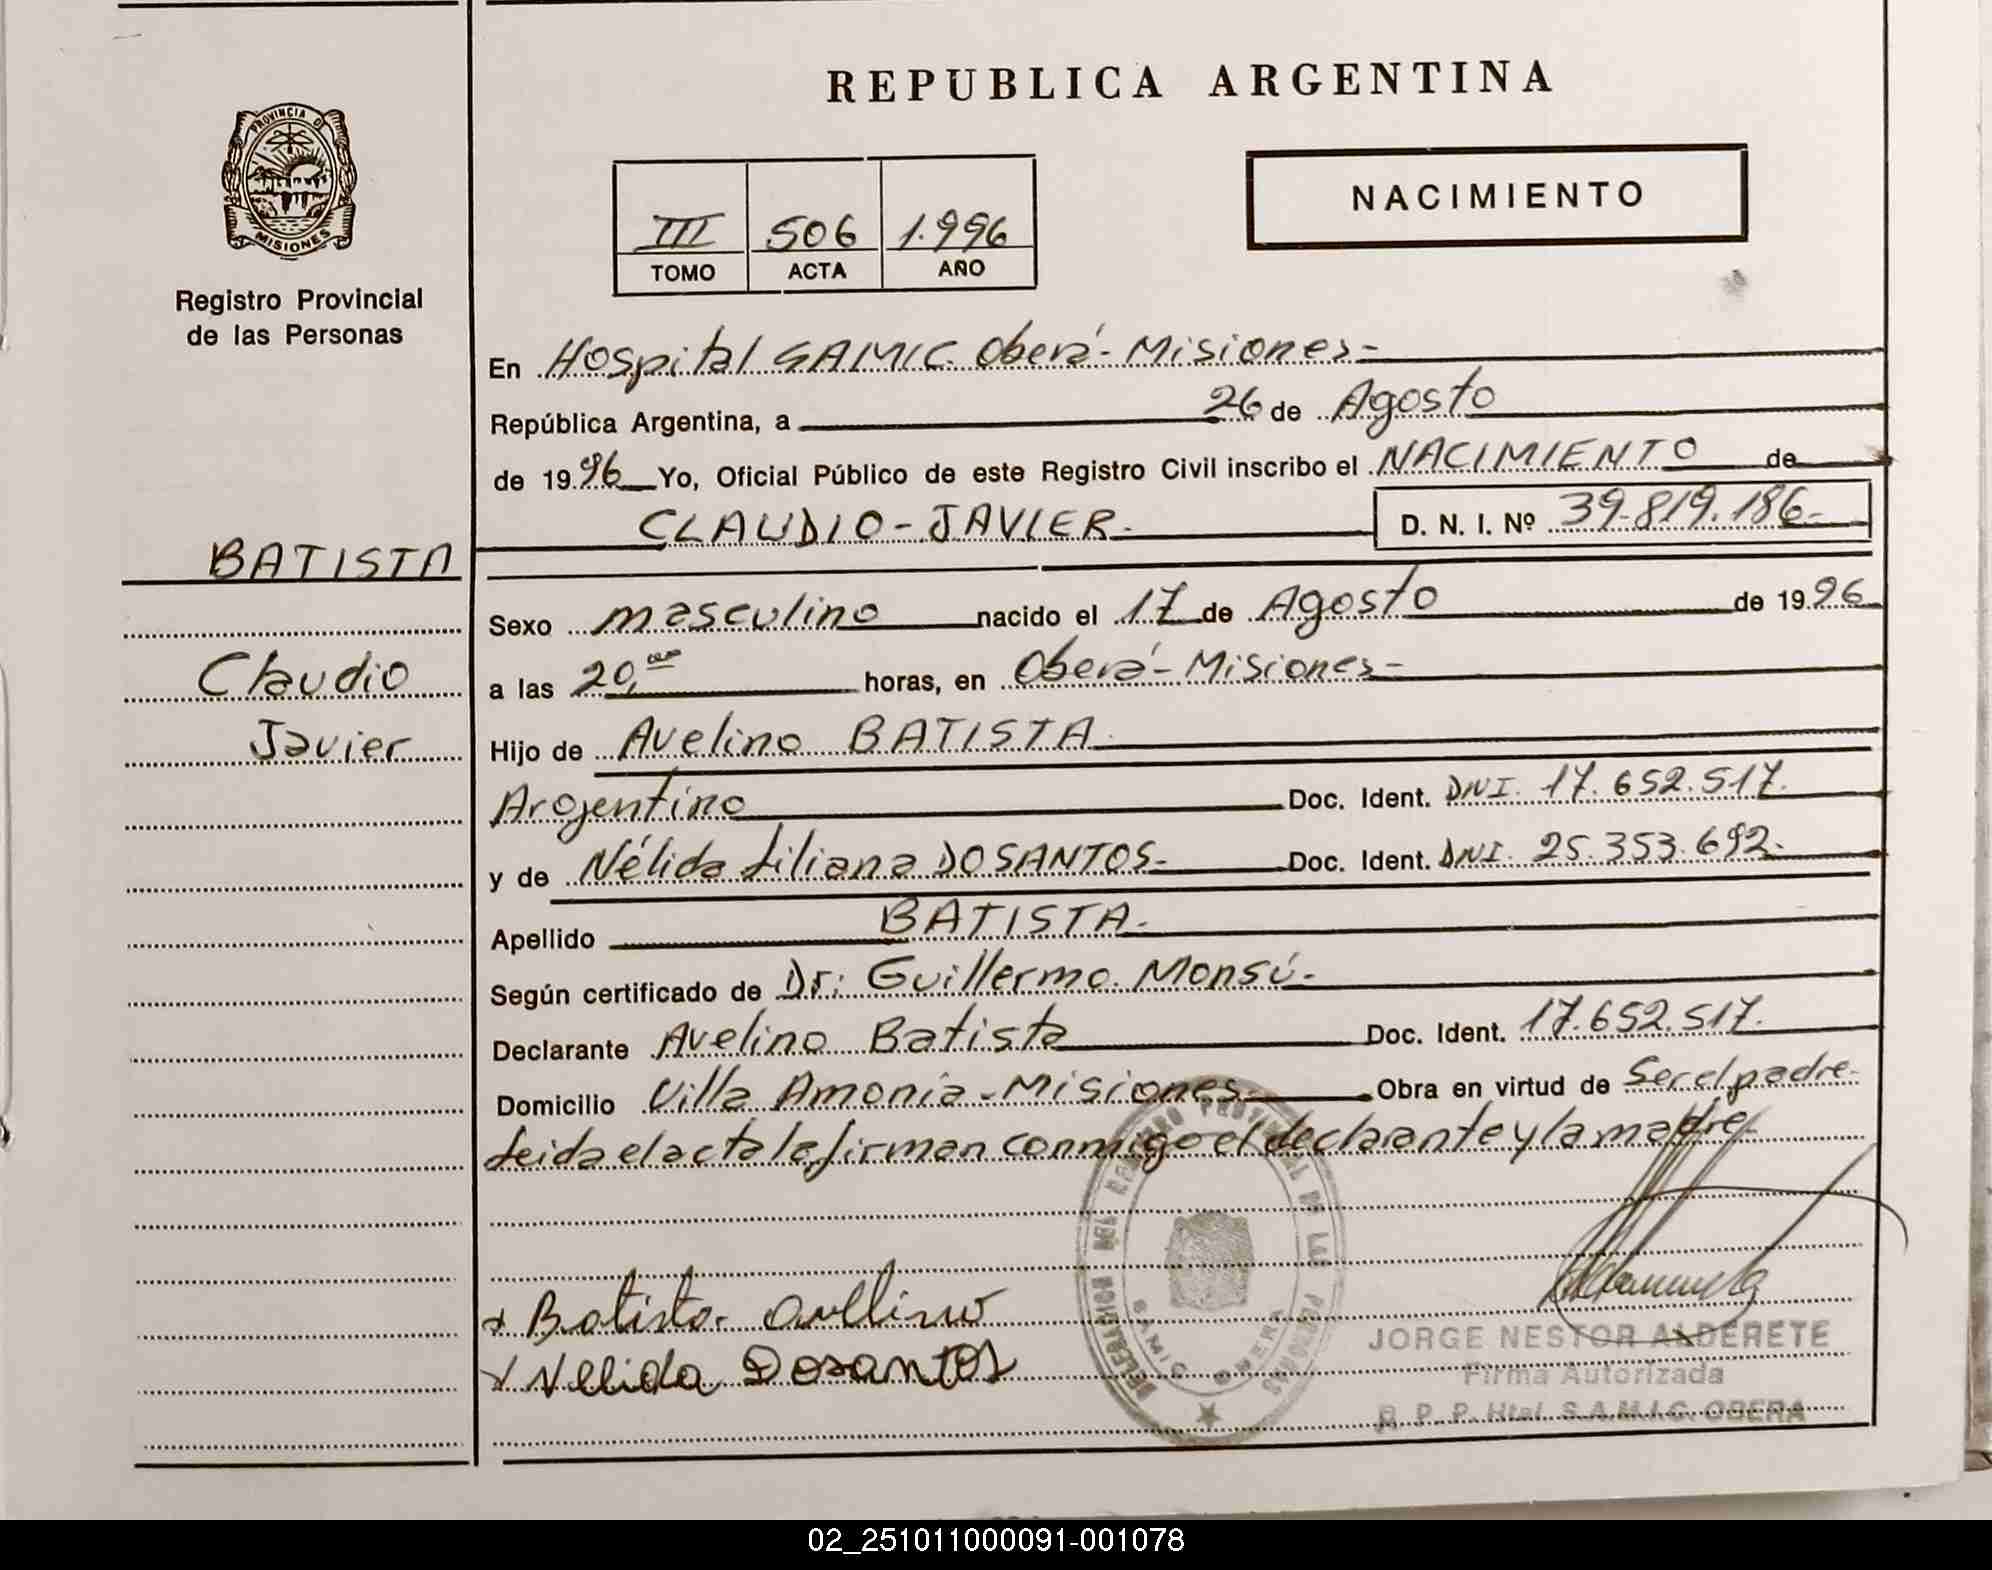 REPUBLICA ARGENTINA
PROVINCIA DE
MISIONES
Registro Provincial
de las Personas
III 506 1.996
TOMO ACTA AÑO
NACIMIENTO
En Hospital SAMIC. Oberá - Misiones -
República Argentina, a 26 de Agosto
de 1996 Yo, Oficial Público de este Registro Civil inscribo el NACIMIENTO de
CLAUDIO - JAVIER. D. N. I. Nº 39.819.186.-
BATISTA
Claudio
Javier
Sexo masculino nacido el 17 de Agosto de 1996
a las 20,00 horas, en Oberá - Misiones -
Hijo de Avelino BATISTA
Argentino Doc. Ident. DNI. 17.652.517.
y de Nélida Liliana DOSANTOS- Doc. Ident. DNI. 25.353.692.-
Apellido BATISTA.
Según certificado de Dr: Guillermo Monsú-
Declarante Avelino Batista Doc. Ident. 17.652.517.
Domicilio Villa Amonía - Misiones - Obra en virtud de Ser el padre.
Leida el acta la firman conmigo el declarante y la madre
Batista Avellino
Nelida Dosantos
DELEGACION DEL REGISTRO PROVINCIAL DE LAS PERSONAS
SAMIC OBERA
JORGE NESTOR ALDERETE
Firma Autorizada
R. P. P. Htal. S.A.M.I.C. OBERA
02_251011000091-001078